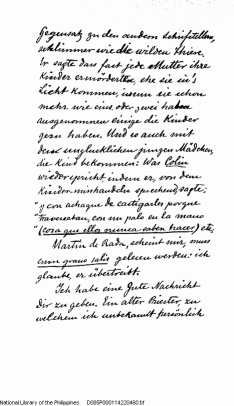 Gegensatz zu den andern Schriftstellern,
schlimmer wie die wilden Thiere.
Er sagte dass fast jede Mutter ihre
Kinder ermordete, ehe sie in's
Licht kommen, wenn sie schon
mehr wie eine oder zwei haben
ausgenommen einige die Kinder
gern haben. Und so auch mit
den unglücklichen jungen Mädchen,
die Kind bekommen: Was Colin
wiederspricht indem er, von dem
Kinder misshandeln sprechend, sagte:
"y con achaque de castigarles porque
traveseaban, con un palo en la mano
"(cosa que ellos nunca saben hacer) etc.
Martin de Rada, scheint mir, muss
cum grano salis gelesen werden: ich
glaube, er übertreibt.
Ich habe eine gute Nachricht
Dir zu geben. Ein alter Priester, zu
welchem ich unbekannt persönlich
National Library of the Philippines